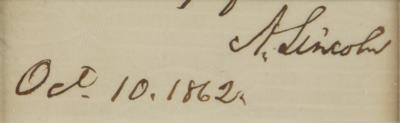 A. Lincoln
Oct. 10. 1862.